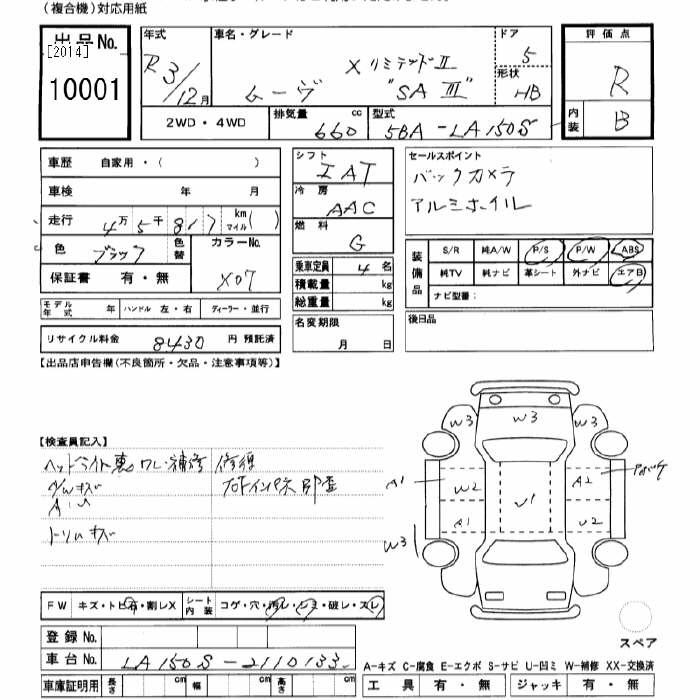 (複合機)対応用紙
出品No.
[2014]
10001
年式
R3/12月
車名・グレード
X リミテッドⅡ
ムーヴ "SAⅢ"
ドア
5
形状
HB
評価点
R
内装
B
2WD・4WD
排気量
660 cc
型式
5BA-LA150S
車歴 自家用・( )
車検 年 月
走行 4万5千817 km マイル( )
色 ブラック 色替
カラーNo.
X07
保証書 有・無
モデル年式 年 ハンドル 左・右 ディーラー・並行
リサイクル料金 8430 円 預託済
シフト
IAT
冷房
AAC
燃料
G
乗車定員 4 名
積載量 kg
総重量 kg
名変期限
月 日
セールスポイント
バックカメラ
アルミホイル
装備品
S/R 純A/W P/S P/W ABS
純TV 純ナビ 革シート 外ナビ エアB
ナビ型番:
後日品
【出品店申告欄(不良箇所・欠品・注意事項等)】
【検査員記入】
ヘッドライト裏ワレ・補修 修復
A/Wキズ
トリムキズ
W3 W3 W3
A1 W2 U1 A2
A1 U2
W3
FW キズ・トビ石・割レX シート内装 コゲ・穴・汚レ・シミ・破レ・スレ
登録No.
車台No. LA150S-2110133
車庫証明用 長さ cm 幅 cm 高さ cm
スペア
A-キズ C-腐食 E-エクボ S-サビ U-凹ミ W-補修 XX-交換済
工具 有・無 ジャッキ 有・無